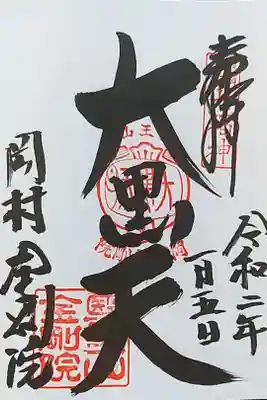 奉拝
令和二年
一月五日
大黒天
岡村 金剛院
金剛院